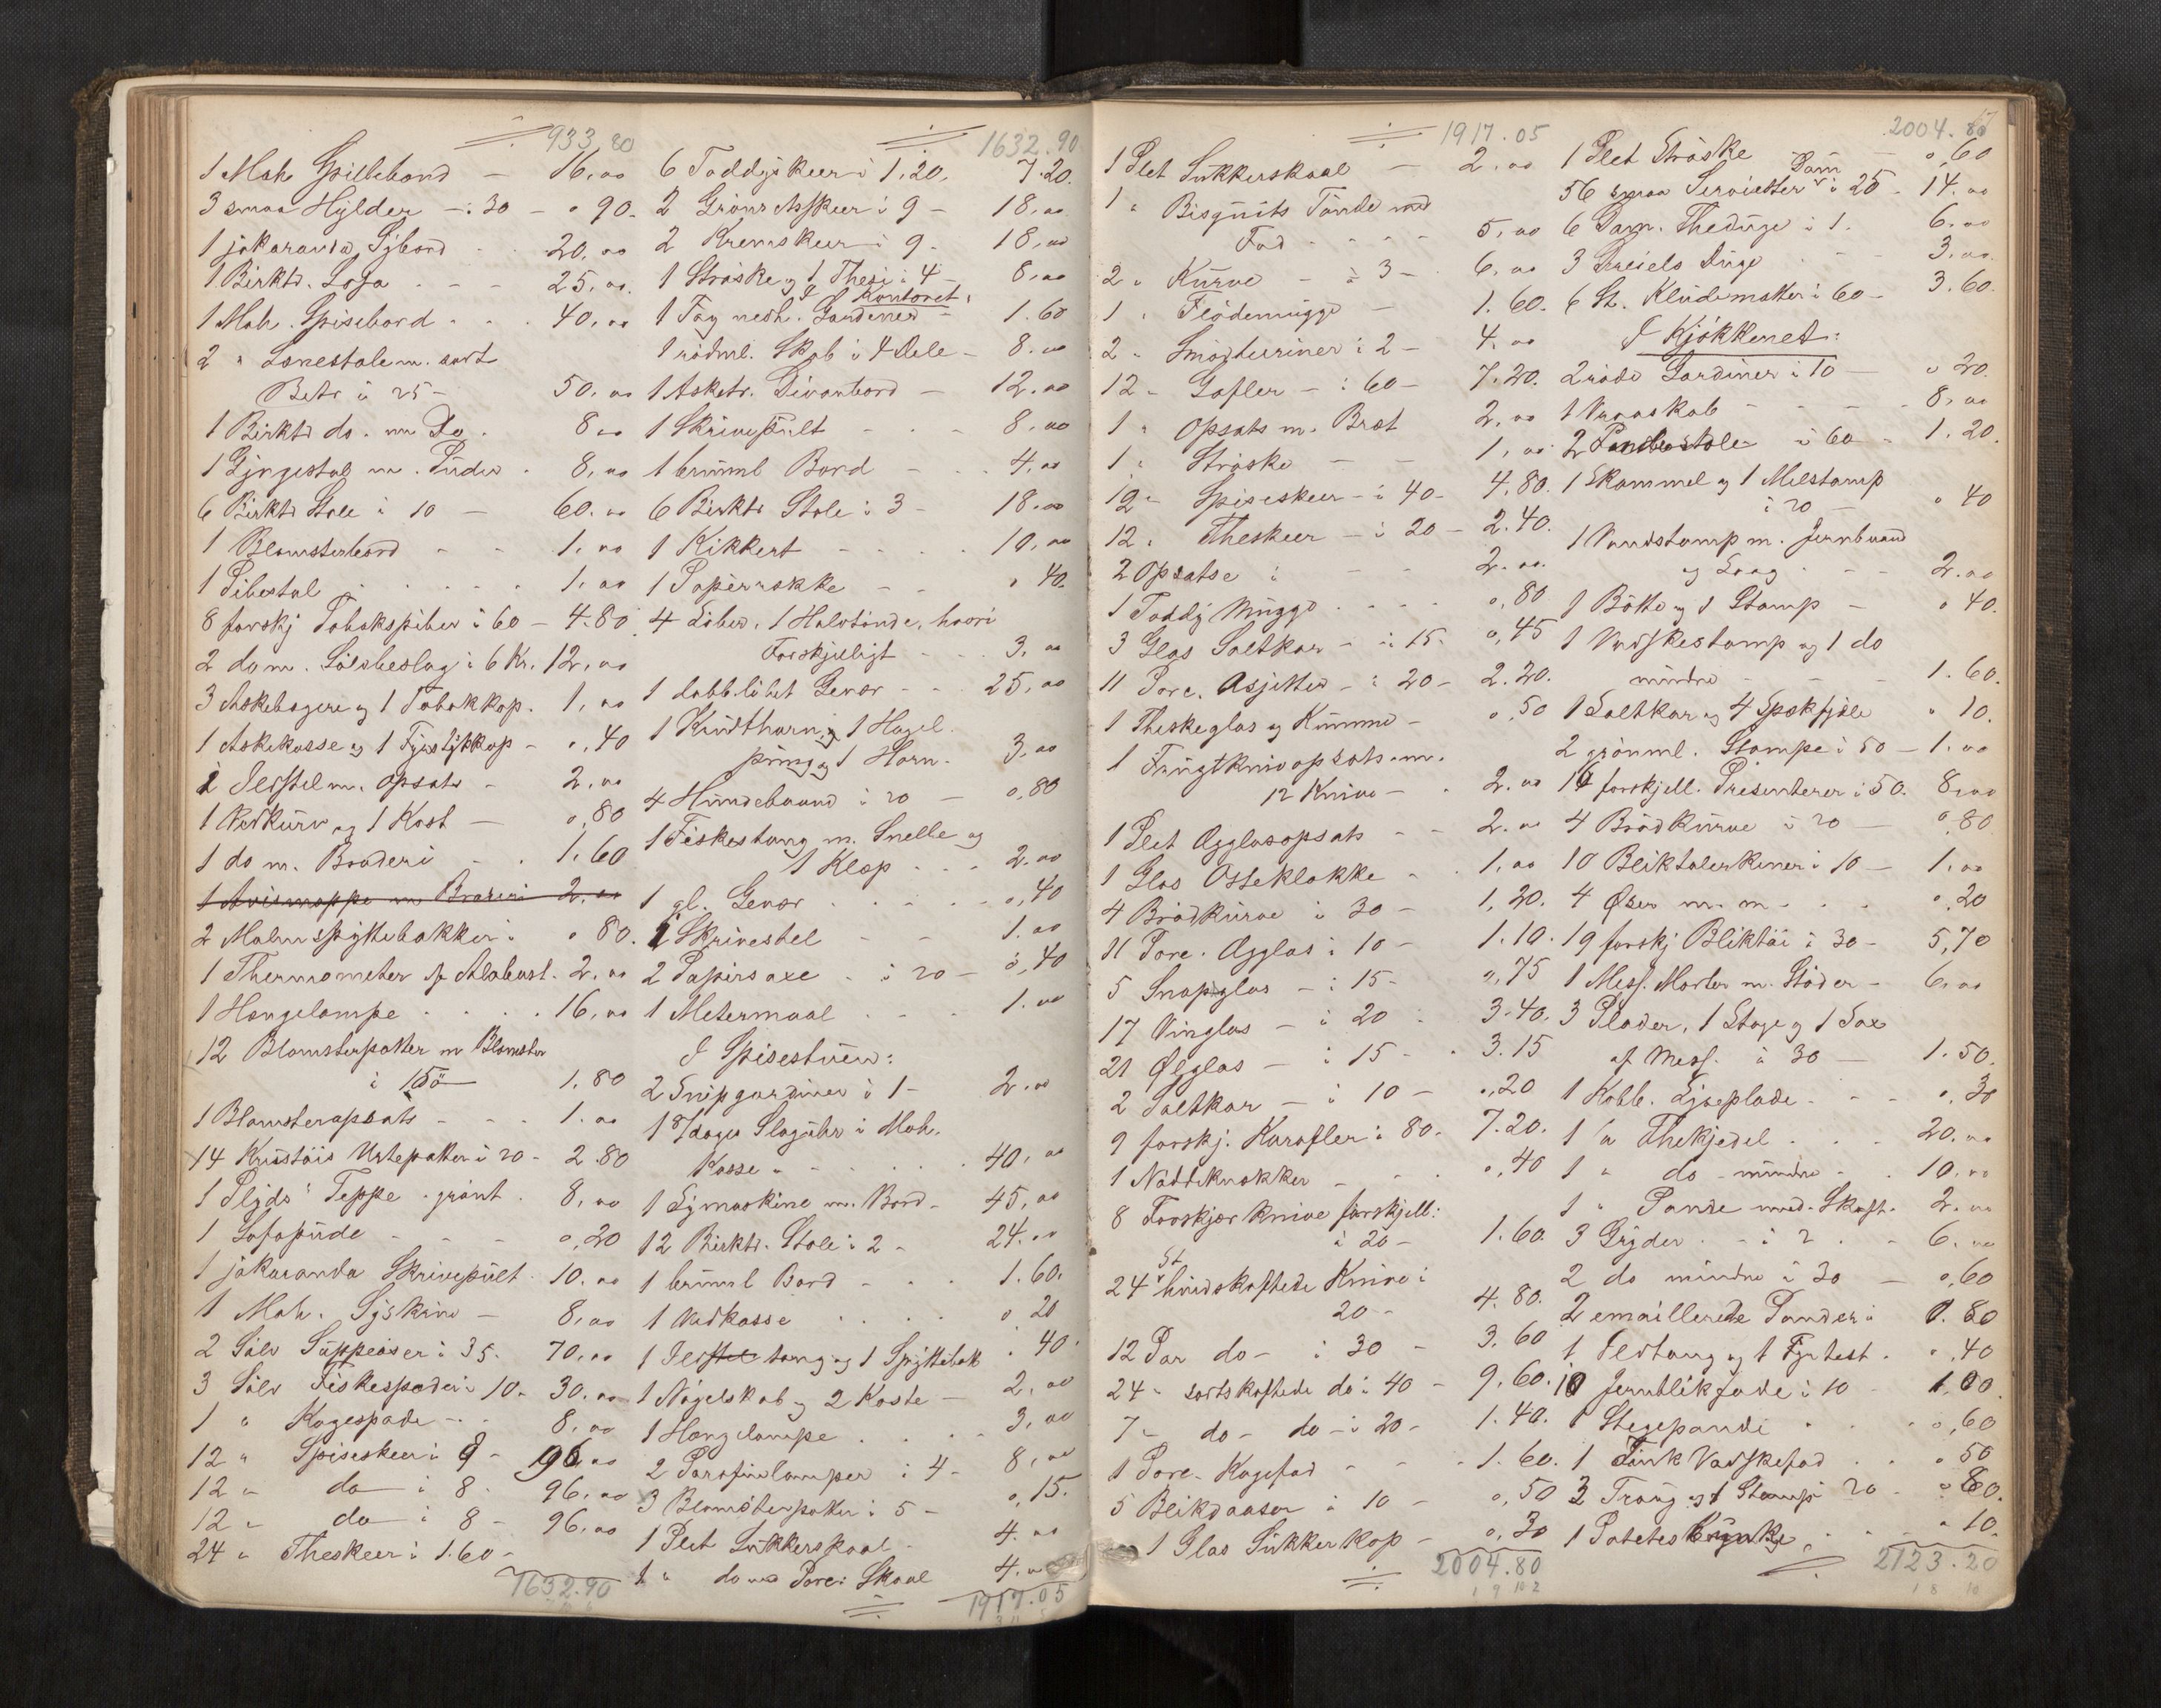 933.80
1 Mah. Spillebord — 16,00
3 smaa Hylder — à 30 — 0 90
1 jakaranda Sybord 20,00
1 Birktr. Sofa 25,00
1 Mah. Spisebord 40,00
2 " Lænestole m. sort
Betr. à 25 — 50,00
1 Birktr do. m. Do. 8,00
1 Gyngestol m. Puder 8,00
6 Birktr Stole à 10 — 60.00
1 Blomsterbord 1,00
1 Pibestol 1,00
8 forskj Tobakspiber à 60 — 4.80
2 do m. Sølvbeslag à 6 Kr. 12,00
3 Askebægere og 1 Tobakkop. 1,00
1 Askekasse og 1 Fyrstikkop — 0,40
1 Ildstel m. Opsats — 2,00
1 Vedkurv og 1 Kost — 0,80
1 do m. Broderi 1.60
1 Avismappe m Broderi 2.00
2 Malm Spyttebakker à 0 80.
1 Thermometer af Alabast. 2,00
1 Hængelampe 16,00
12 Blomsterpotter m Blomster
à 15 ø 1.80
1 Blomsteropsats 1.00
14 Krustøis Urtepotter à 20 — 2.80
1 Plyds Teppe grønt 8,00
1 Sofapude 0,20
1 jakaranda Skrivepult 10.00
1 Mah. Syskrin 8,00
2 Sølv Suppeøser à 35. 70,00
3 Sølv Fiskespader à 10. 30.00
1 " Kagespade 8,00
12 " Spiseskeer à 8 — 96,00
12 " do à 8 96.00
12 " do à 8 — 96,00
24 " Theskeer à 1.60 —
1632.90
1632.90
6 Toddyskeer à 1.20. 7.20.
2 Grønsagskeer à 9 — 18,00
2 Kremskeer à 9. 18,00
1 Strøske og 1 Thesi à 4 — 8,00
I Kontoret:
1 Fag nedh. Gardiner — 1.60
1 rødml. Skab i 4 Dele — 8.00
1 Asketr. Divanbord — 12.00
1 Skrivepult 8.00
1 brunml Bord 4,00
6 Birktr Stole à 3 — 18.00
1 Kikkert 10,00
1 Papirrække 0 40.
4 Løber, 1 Halvtønde, hvori
Forskjelligt 3.00
1 dobbløbet Gevær 25,00
1 Krudthorn, 1 Hagel
pung og 1 Horn. 3,00
4 Hundebaand à 20 — 0,80
1 Fiskestang m. Snelle og
1 Klep 2.00
1 gl. Gevær 0,40
1 Skrivestel 1.00
2 Papirsaxe à 20 — 0,40
1 Metermaal 1.00
I Spisestuen:
2 Snipgardiner à 1 — 2.00
1 8/dages Slaguhr i Mah.
Kasse 40,00
1 Symaskine m. Bord — 45,00
12 Birktr. Stole à 2 — 24.00
1 brunml Bord 1.60.
1 Vedkasse 0 20
1 Ildtang og 1 Spyttebak 0 40
1 Nøgelskab og 2 Koste — 2,00
1 Hængelampe 3,00
2 Parafinlamper à 4 — 8,00
3 Blomsterpotter à 5 — 0,15.
1 Plet Sukkerskaal 4.00
1 " do med Porc. Skaal 4.00
1917.05
1917.05
1 Plet Sukkerskaal — 2.00
1 " Bisquits Tønde med
Fad 5,00
2 " Kurve — à 3 — 6,00
1 " Flødemugge — 1.60.
2 " Smørterriner à 2 — 4.00
12 " Gafler — à 60 — 7.20.
1 " Opsats m. Bræt 2,00
1 " Strøske 1,00
12 " Spiseskeer — à 40 — 4.80.
12 " Theskeer — à 20 — 2.40.
2 Opsatse à 2.00
1 Toddy Mugge 0,80
3 Glas Saltkar — à 15. 0,45
11 Porc. Asjetter — à 20 — 2.20.
1 Theskeglas og Kumme — 0,50
1 Frugtkniv opsats m.
12 Knive — 2.00
1 Plet Ægglasopsats 2.00
1 Glas Osteklokke 1,00
4 Brødkurve à 30 — 1,20.
11 Porc. Ægglas à 10 — 1.10.
5 Snapsglas — à 15 — 0,75
17 Vinglas — à 20 3.40.
21 Ølglas — à 15 3.15
2 Saltkar — à 10 — 0,20
9 forskj. Karafler à 80. 7.20.
1 Nøddeknækker 0,40
8 Forskjær Knive forskjell:
à 20 — 1.60.
24 St hvidskaftede Knive à
20 — 4.80.
12 Par do — à 30 — 3.60
24 " sortskaftede do à 40 — 9.60.
7 " do — do — à 20 — 1.40.
1 Porc. Kagefad 1.60.
5 Blikdaaser à 10 — 0,50
1 Glas Sukkerkop — 0.30
2004.80
2004.80
1 Plet Strøske 0,60
56 smaa Servietter Dam à 25 — 14.00
6 Dam. Theduge à 1. 6.00
3 Dreiels Duge 3,00
6 St. Kludematter à 60 — 3.60.
I Kjøkkenet:
2 røde Gardiner à 10 — 0 20.
1 Vraaskab 8,00
2 Pindestole à 60 1.20.
1 Skammel og 1 Melstamp
à 20 — 0 40
1 Vandstamp m. Jernbaand
og Laag 2.00
1 Bøtte og 1 Stamp — 0 40.
1 Vadskestamp og 1 do
mindre 1.60.
1 Saltkar og 4 Spækfjæle 0 10.
2 grønml. Stampe à 50 — 1.00
14 forskjell. Presenterer à 50. 8,00
4 Brødkurve à 20 — 0,80
10 Bliktalerkener à 10 — 1.00
4 Øser m. m. 0,20
19 forskj Bliktøi à 30 — 5,70
1 Mess. Morter m. Støder — 6.00
3 Plader, 1 Stage og 1 Sax
af Mess. à 30 — 1.50.
1 Kobb. Lyseplade 0,30
1 " Thekjedel 20.00
1 " do — mindre 10.00
1 " Pande med Skaft. 2.00
3 Gryder — à 2 6.00
2 do mindre à 30 — 0,60
2 emaillerede Pander à 0.80
1 Ildtang og 1 Fyrtest 0,40
10 Jernblikfade à 10 1,00.
1 Stegepande 0,60
1 Zink Vadskefad 0 50
3 Traug og 1 Stamp 20 — 0 80.
1 Potetes 0 10.
2123.20